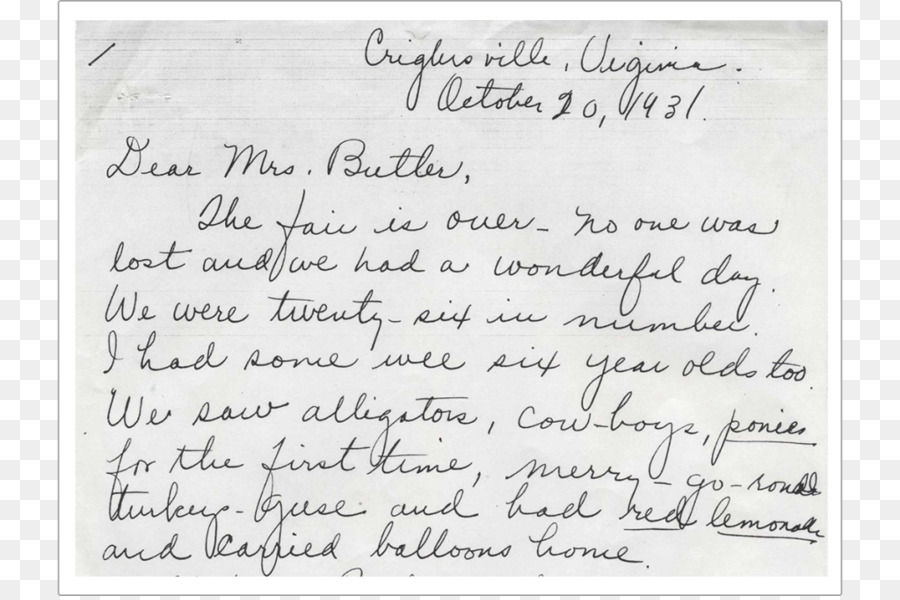 Criglersville, Virginia.
October 20, 1931.
Dear Mrs. Butler,
The fair is over - no one was
lost and we had a wonderful day.
We were twenty-six in number.
I had some wee six year olds too.
We saw alligators, cow-boys, ponies
for the first time, merry-go-round
turkeys - geese and had red lemonade
and carried balloons home.